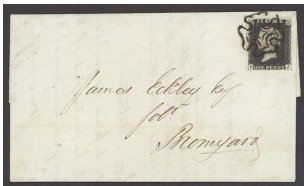 ONE PENNY
James Eckley Esq
Solr
Bromyard